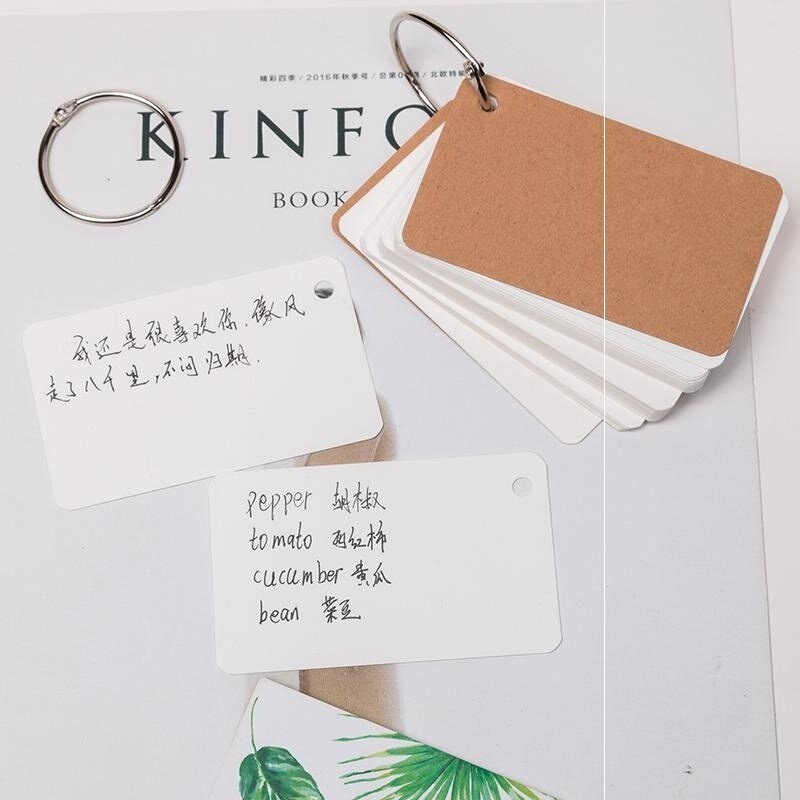 精彩四季 / 2016年秋季号 / 总第0 / 北欧特
KINFO
BOOK
我还是很喜欢你，像风
走了八千里，不问归期．
pepper 胡椒
tomato 西红柿
cucumber 黄瓜
bean 菜豆